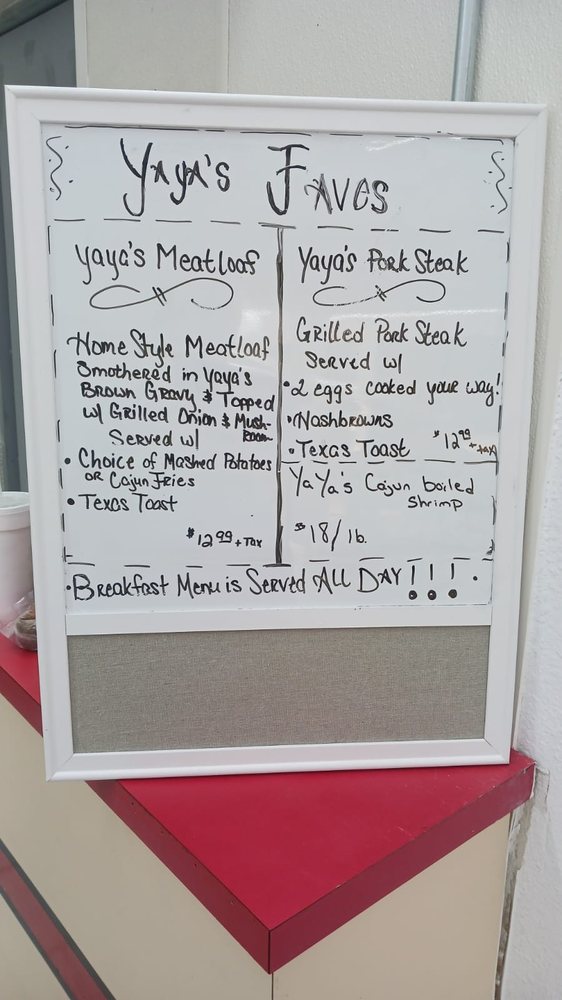 Yaya's Faves
Yaya's Meatloaf
Home Style Meatloaf
Smothered in Yaya's
Brown Gravy & Topped
w/ Grilled Onion & Mush-
room
Served w/
• Choice of Mashed Potatoes
or Cajun Fries
• Texas Toast
$12.99 + Tax
Yaya's Pork Steak
Grilled Pork Steak
Served w/
• 2 eggs cooked your way!
• Hashbrowns
• Texas Toast $12.99 + tax
YaYa's Cajun boiled
Shrimp
$18/lb.
• Breakfast Menu is Served ALL DAY!!! •